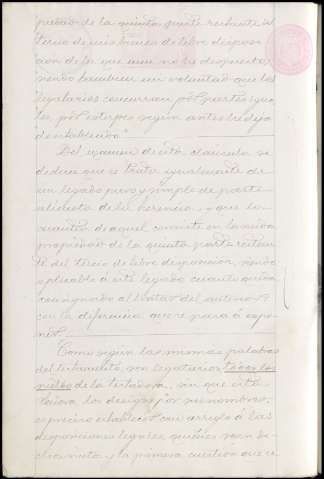 presado de la quinta parte restante del
tercio de mis bienes de libre disposi-
cion de la que aun no he dispuesto,
siendo tambien mi voluntad que los
legatarios concurran por partes igua-
les, por estirpes segun antes he deja-
do establecido"
Del examen de esta clausula se
deduce que se trata igualmente de
un legado puro y simple de parte
alicuota de la herencia, y que la
cuantia de aquel consiste en la nuda
propiedad de la quinta parte restan-
te del tercio de libre disposicion, siendo
aplicable á este legado cuanto queda
consignado al tratar del anterior
con la diferencia que se pasa á expo-
ner.
Como segun las mismas palabras
del testamento, son legatarios todos los
nietos de la testadora, sin que esta
los designe por sus nombres,
es preciso establecer con arreglo á las
disposiciones legales, quienes sean di-
chos nietos, y la primera cuestion que se